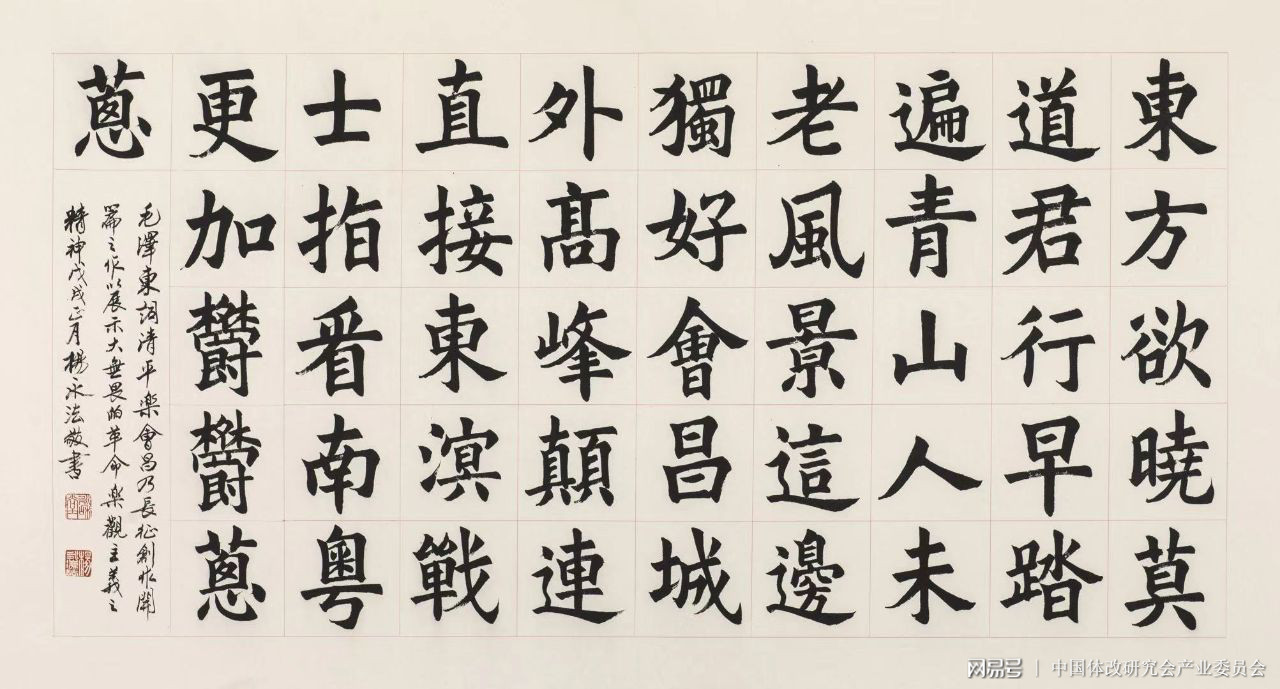 東方欲曉莫
道君行早踏
遍青山人未
老風景這邊
獨好會昌城
外高峰顛連
直接東溟戰
士指看南粵
更加鬱鬱蔥
蔥
毛澤東詞清平樂會昌乃長征創作開
篇之作以展示大無畏的革命樂觀主義之
精神戊戌正月楊永法敬書
网易号 | 中国体改研究会产业委员会